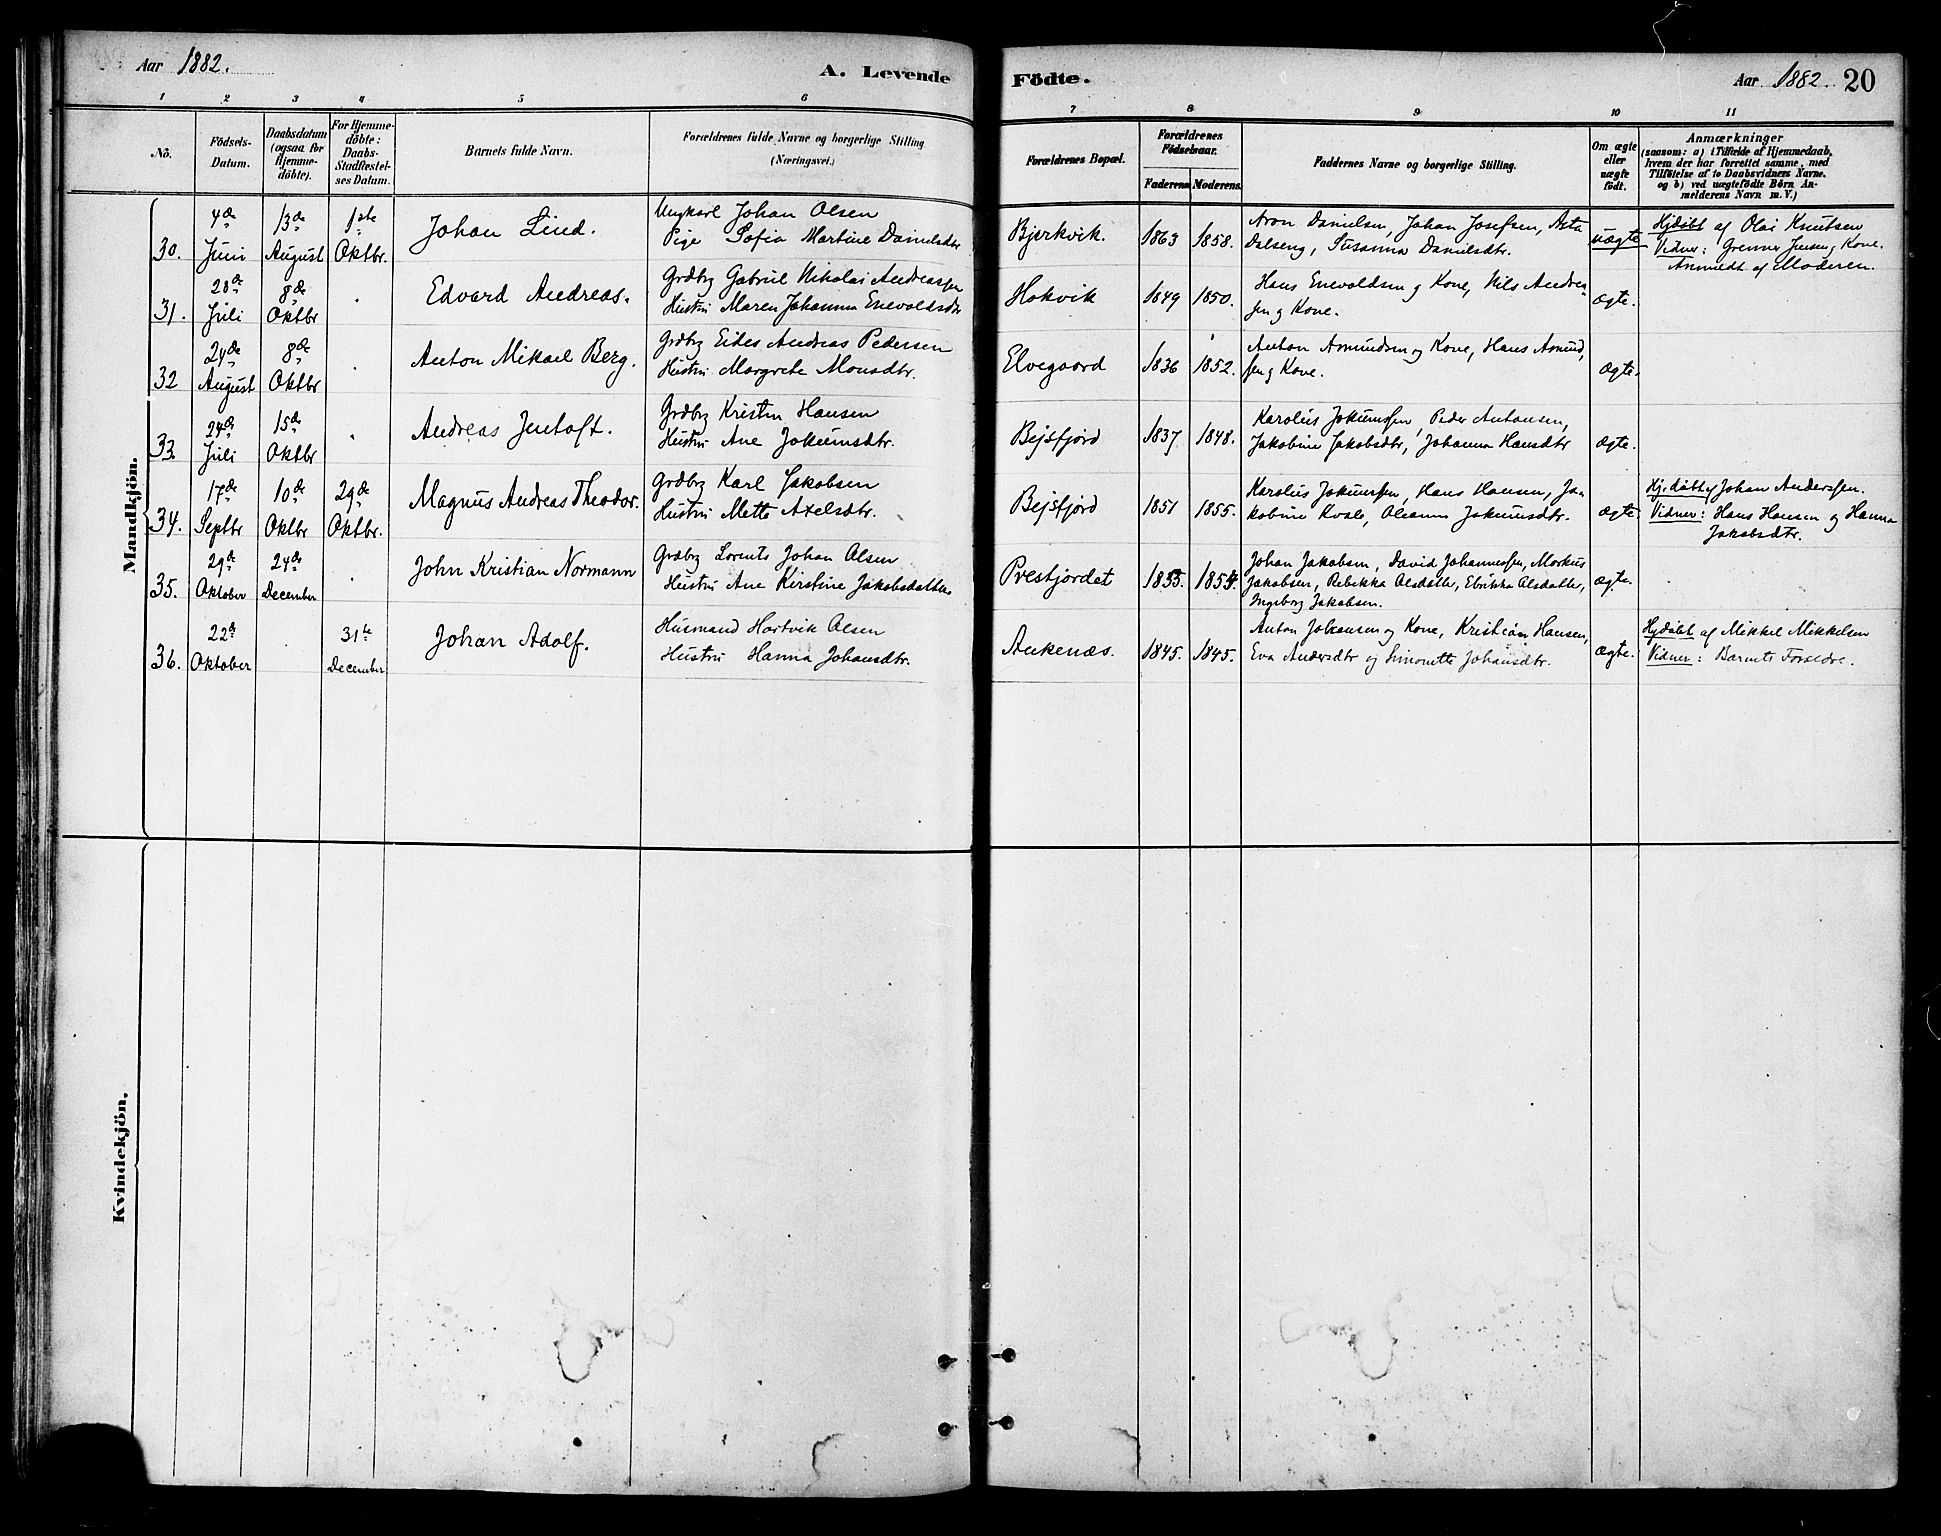 Aar 1882.
A. Levende Födte.
Aar 1882. 20
1 2 3 4 5 6 7 8 9 10 11
No.
Födsels-Datum.
Daabsdatum (ogsaa for Hjemme-döbte).
For Hjemme-döbte: Daabs-Stadfestel-ses Datum.
Barnets fulde Navn.
Forældrenes fulde Navne og borgerlige Stilling
(Næringsvei.)
Forældrenes Bopæl.
Forældrenes Födselsaar.
Faderens Moderens.
Faddernes Navne og borgerlige Stilling.
Om ægte eller uægte födt.
Anmærkninger
(saasom: a) i Tilfælde af Hjemmedaab,
hvem der har forrettet samme, med
Tilföielse af to Daabsvidners Navne.
og b) ved uægtefödte Börn An-
melderens Navn m. V.)
Mandkjön.
30. 4de Juni 13de August 1ste Oktbr. Johan Lind.
Ungkarl Johan Olsen
Pige Sofia Martine Danielsdtr
Bjerkvik. 1863 1858.
Aron Danielsen, Johan Josefsen, Asta
Dalseng, Susanna Danielsdtr.
uægte
Hjdöbt af Olai Knutsen
Vidner: Grenner Jensen og Kone.
Anmeldt af Moderen.
31. 28de Juli 8de Oktbr Edvard Andreas.
Grdbrg Gabriel Nikolai Andreassen
Hustru Maren Johanna Enevoldsdtr
Hokvik 1849 1850.
Hans Enevoldsen og Kone, Nils Andrea-
sen og Kone.
ægte.
32 24de August 8de Oktbr Anton Mikael Berg.
Grdbrg Eides Andreas Pedersen
Hustru Margrete Monsdtr.
Elvegaard 1836 1852.
Anton Asmundsen og Kone, Hans Asmund,
sen og Kone.
ægte.
33. 24de Juli 15de Oktbr Andreas Jentoft.
Grdbrg Kristen Hansen
Hustru Ane Jokumsdtr.
Bejsfjord 1837 1848.
Karolius Jokumssen, Peder Antonsen,
Jakobine Jakobsdtr, Johanna Hansdtr
ægte.
34. 17de Septbr 10de Oktbr 29de Oktbr. Magnus Andreas Theodor.
Grdbrg Karl Jakobsen
Hustru Mette Axelsdtr.
Bejsfjord 1851 1855.
Karolius Jokumssen, Hans Hansen, Ja-
kobine Kvale, Oleanna Jokumsdtr.
ægte
Hj.döbt af Johan Anderssen.
Vidner: Hans Hansen og Hanna
Jakobsdtr.
35. 29de Oktober 24de December John Kristian Normann
Grdbrg Lorents Johan Olsen
Hustru Ane Kirstine Jakobsdatter
Prestjordet 1853. 1854.
Johan Jakobsen, David Johannessen, Markus
Jakobsen, Rebekka Olsdatter, Elrikka Olsdatter,
Ingeborg Jakobsen.
ægte.
36. 22de Oktober 31te December Johan Adolf.
Husmand Hartvik Olsen
Hustru Hanna Johansdtr.
Ankenæs. 1845. 1845.
Anton Johansen og Kone, Kristian Hansen,
Eva Andersdtr og Simonette Johansdtr.
ægte.
Hjdöbt af Mikkel Mikkelsen
Vidner: Barnets Forældre.
Kvindekjön.